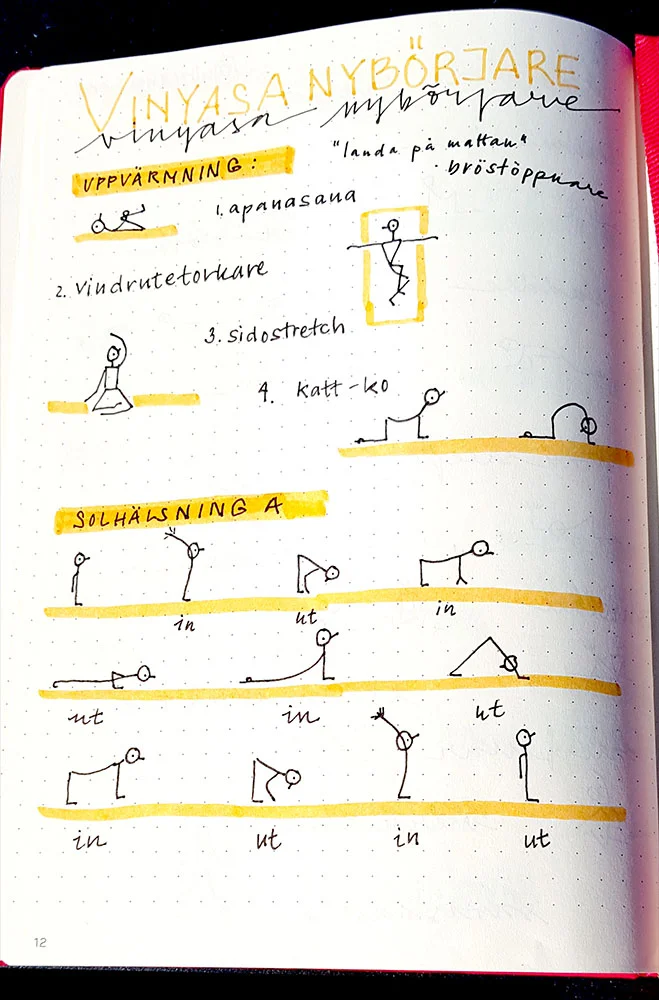 VINYASA NYBÖRJARE
vinyasa nybörjare
"landa på mattan"
· bröstöppnare
UPPVÄRMNING:
1. apanasana
2. vindrutetorkare
3. sidostretch
4. katt-ko
SOLHÄLSNING A
in ut in
ut in ut
in ut in ut
12